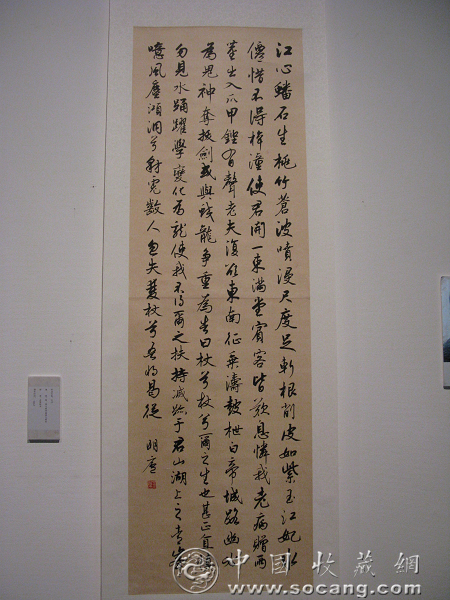 江心蟠石生桃竹蒼波噴浸尺度足斬根削皮如紫玉江妃水
僊惜不得梓潼使君開一束滿堂賓客皆歎息憐我老病贈兩
莖出入爪甲鏗有聲老夫復欲東南征乘濤鼓枻白帝城路幽必
為鬼神奪拔劍或與蛟龍爭重為告曰杖兮杖兮爾之生也甚正直慎
勿見水踊躍學變化為龍使我不得爾之扶持滅跡于君山湖上之青峰
噫風塵澒洞兮豺虎人忽失雙杖兮吾將曷從 明
中国收藏網
www.socang.com